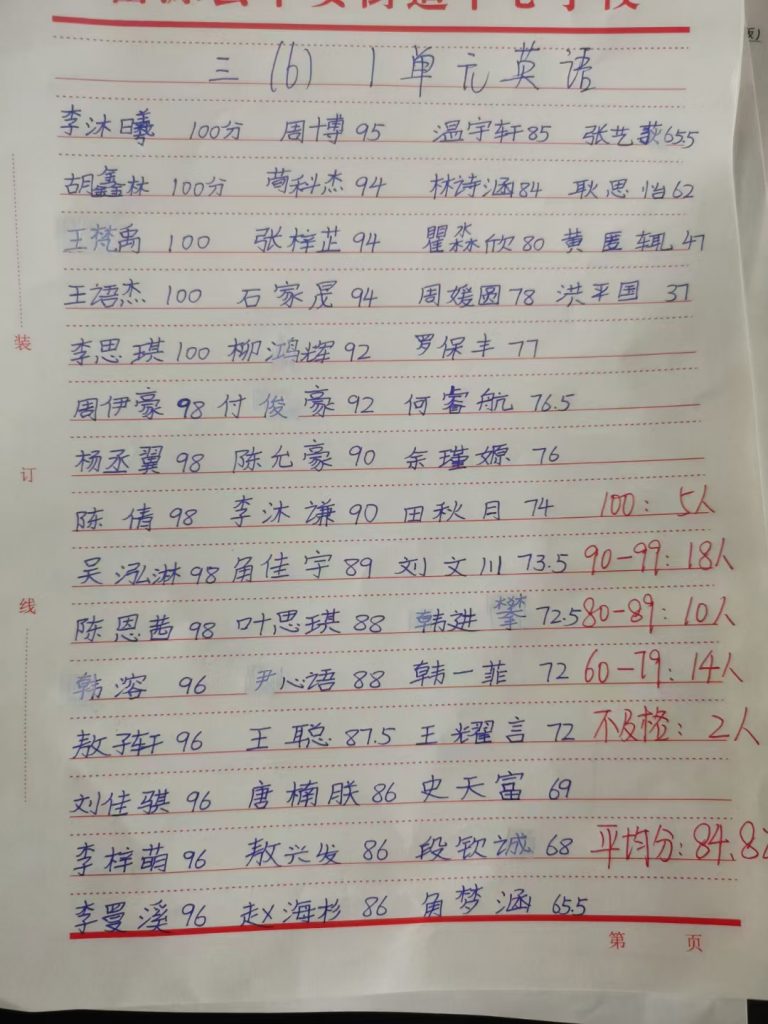 三(6) 1单元英语
李沐曦 100分 周博 95 温宇轩 85 张艺 65.5
胡鑫林 100分 荀科杰 94 林诗涵 84 耿思怡 62
王梵禹 100 张梓芷 94 瞿淼欣 80 黄匿辄 47
王语杰 100 石家晟 94 周媛圆 78 洪平国 37
李思琪 100 柳鸿辉 92 罗保丰 77
周伊豪 98 付俊豪 92 何睿航 76.5
杨丞翼 98 陈允豪 90 余瑾嫄 76
陈倩 98 李沐谦 90 田秋月 74 100: 5人
吴泓淋 98 角佳宇 89 刘文川 73.5 90-99: 18人
陈恩茜 98 叶思琪 88 韩进攀 72.5 80-89: 10人
韩溶 96 尹心语 88 韩一菲 72 60-79: 14人
敖子轩 96 王聪 87.5 王耀言 72 不及格: 2人
刘佳骐 96 唐楠朕 86 史天富 69
李梓萌 96 敖兴发 86 段钦诚 68 平均分: 84.8
李曼溪 96 赵海杉 86 角梦涵 65.5
第 页
装
订
线